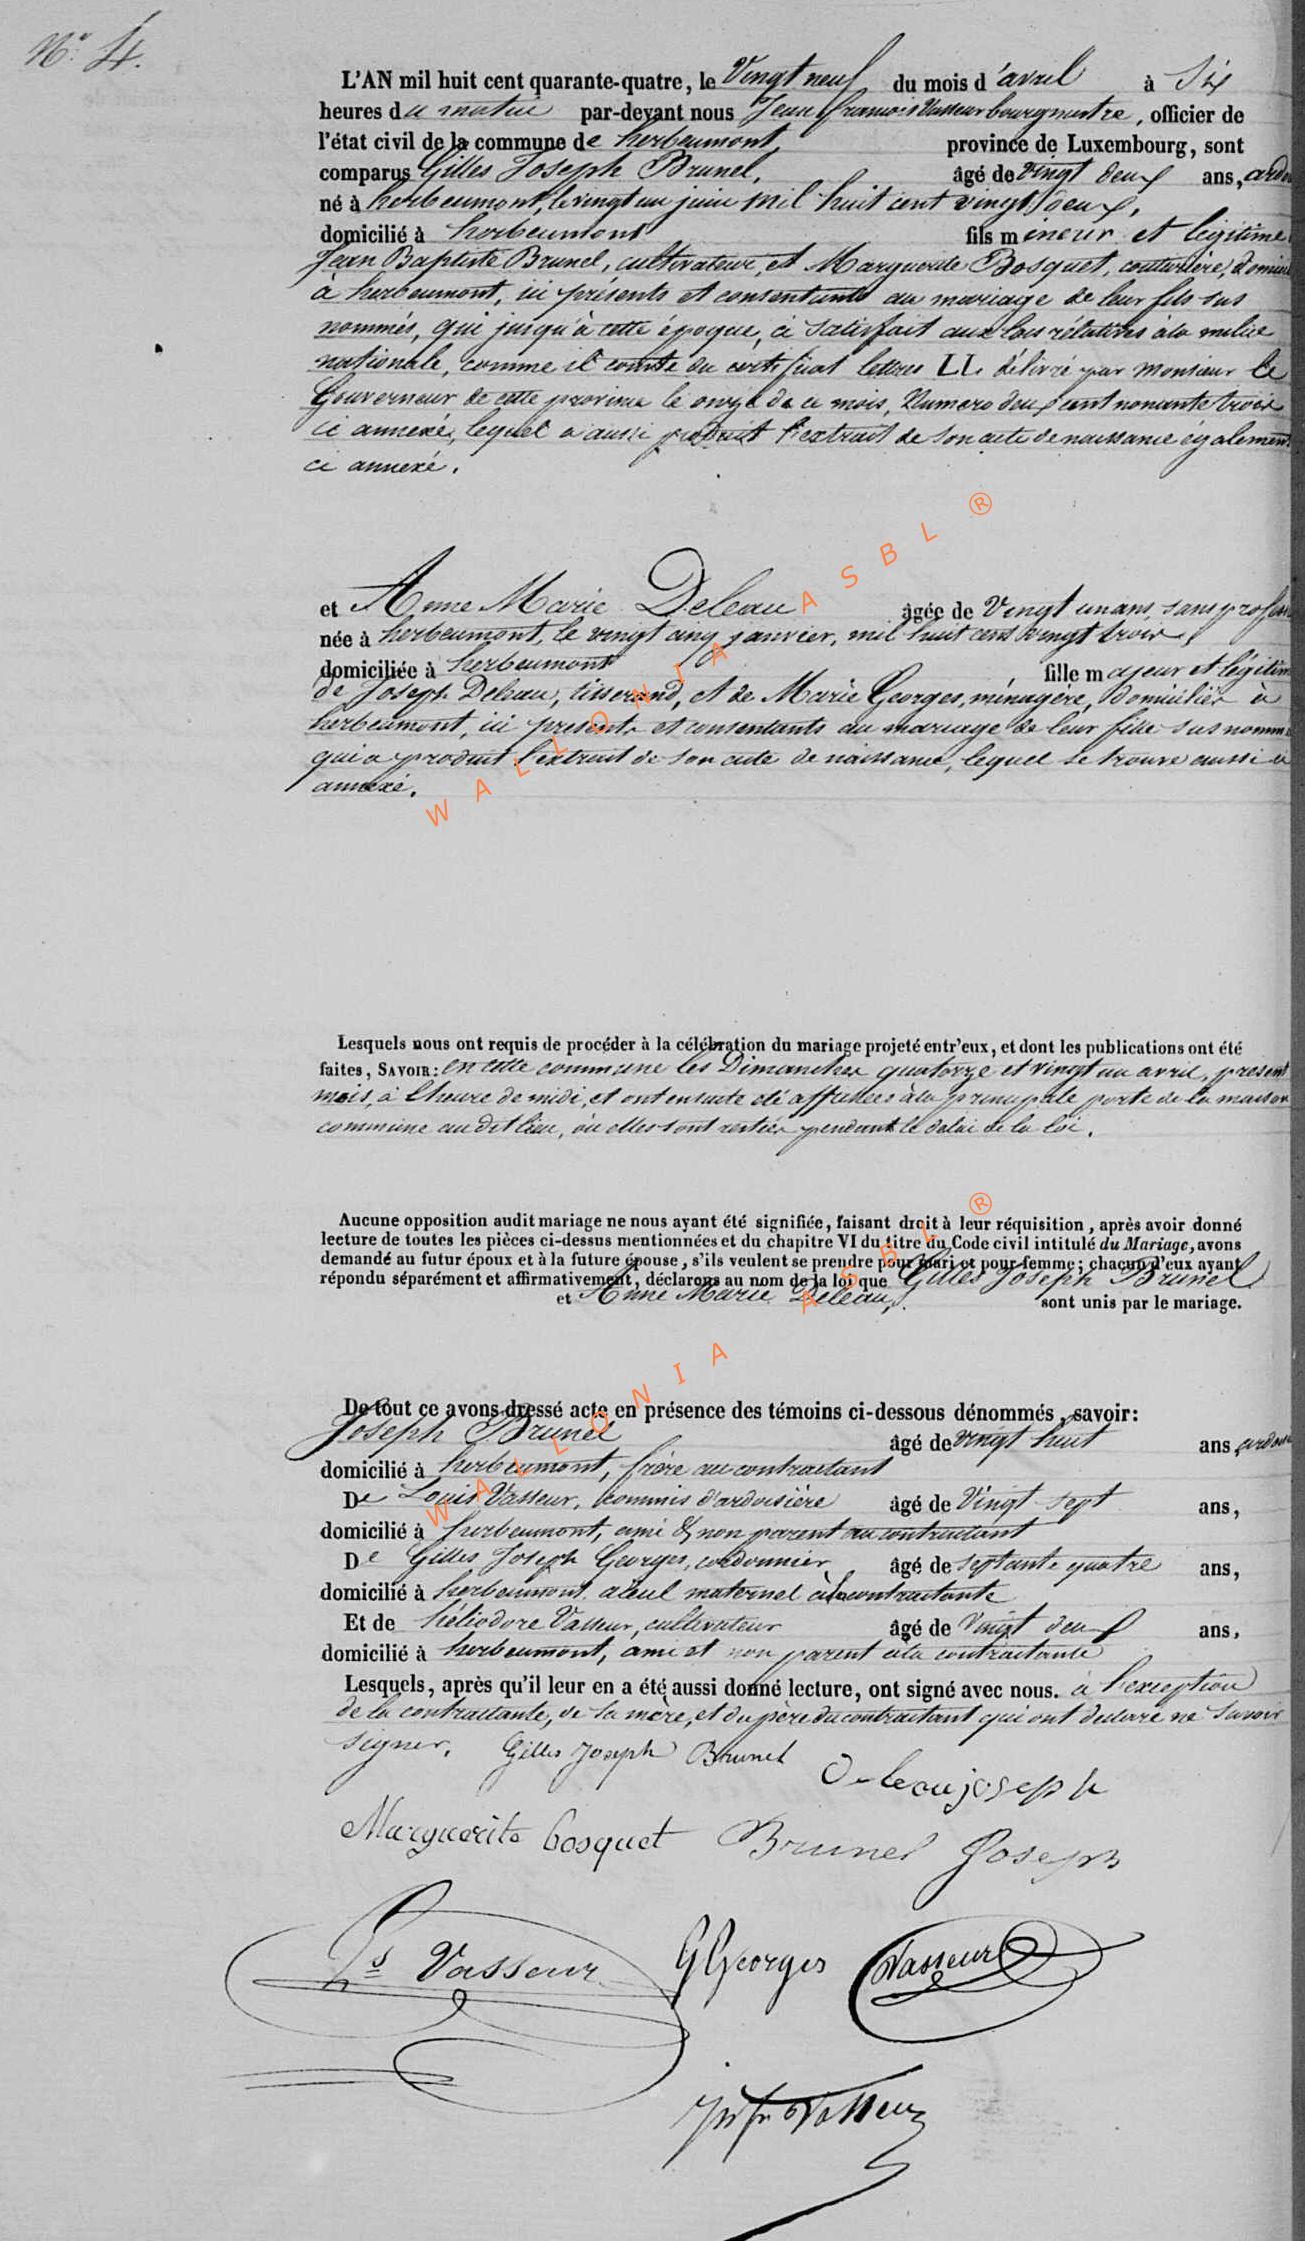 N° 4.
L'AN mil huit cent quarante-quatre, le Vingt neuf du mois d'avril à Six
heures du matin par-devant nous Jean françois Vasseur bourgmestre, officier de
l'état civil de la commune de herbeumont, province de Luxembourg, sont
comparus Gilles Joseph Brunel, âgé de vingt deux ans, ardoi
né à herbeumont, le vingt un juin mil huit cent vingt deux,
domicilié à herbeumont fils mineur et légitime
Jean Baptiste Brunel, cultivateur, et Marguerite Bosquet, couturière, domici
à herbeumont, ici présents et consentants au mariage de leur fils sus
nommés, qui jusqu'à cette époque, à satisfait aux lois rélatives à la milice
nationale, comme il conste du certificat lettres LL. délivré par Monsieur le
Gouverneur de cette province le onze de ce mois, Numero deux cent nonante trois
ci annexé, lequel a aussi produit l'extrait de son acte de naissance également
ci annexé.
et Anne Marie Deleau âgée de Vingt un ans, sans profess
née à herbeumont, le vingt cinq janvier, mil huit cent vingt trois,
domiciliée à herbeumont fille majeur et légitim
de Joseph Deleau, tisserand, et de Marie Georges, ménagère, domiciliés à
herbeumont, ici présents et consentants au mariage de leur fille sus nommé
qui a produit l'extrait de son acte de naissance, lequel se trouve aussi ci
annexé.
Lesquels nous ont requis de procéder à la célébration du mariage projeté entr'eux, et dont les publications ont été
faites, SAVOIR: en cette commune les Dimanches quatorze et vingt un avril, présent
mois, à l'heure de midi, et ont ensuite été affichées à la principale porte de la maison
commune au dit lieu, où elles sont restées pendant le délai de la loi.
Aucune opposition audit mariage ne nous ayant été signifiée, faisant droit à leur réquisition, après avoir donné
lecture de toutes les pièces ci-dessus mentionnées et du chapitre VI du titre du Code civil intitulé du Mariage, avons
demandé au futur époux et à la future épouse, s'ils veulent se prendre pour mari et pour femme; chacun d'eux ayant
répondu séparément et affirmativement, déclarons au nom de la loi que Gilles Joseph Brunel
et Anne Marie Deleau, sont unis par le mariage.
De tout ce avons dressé acte en présence des témoins ci-dessous dénommés, savoir:
Joseph Brunel âgé de vingt huit ans, ardois
domicilié à herbeumont, frère au contractant
De Louis Vasseur, commis d'ardoisière âgé de Vingt sept ans,
domicilié à herbeumont, ami & non parent au contractant
De Gilles Joseph Georges, cordonnier âgé de septante quatre ans,
domicilié à herbeumont, aïeul maternel à la contractante
Et de héliodore Vasseur, cultivateur âgé de Vingt deux ans,
domicilié à herbeumont, ami et non parent à la contractante
Lesquels, après qu'il leur en a été aussi donné lecture, ont signé avec nous. à l'exception
de la contractante, de sa mère, et du père du contractant qui ont déclaré ne savoir
signer.
Gilles Joseph Brunel
Deleau joseph
Marguerite bosquet Brunel Joseph
Ls Vasseur GGeorges Vasseur
Vasseur
WALLONIA ASBL ®
WALLONIA ASBL ®